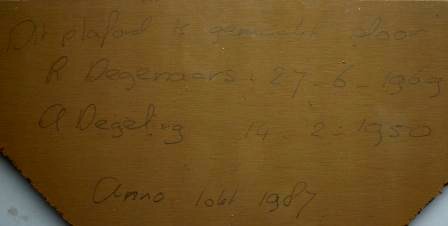 Dit plafond is gemaakt door
R Degenaars 27-6-1969
A Degeling 14-2-1950
Anno 1 okt 1987